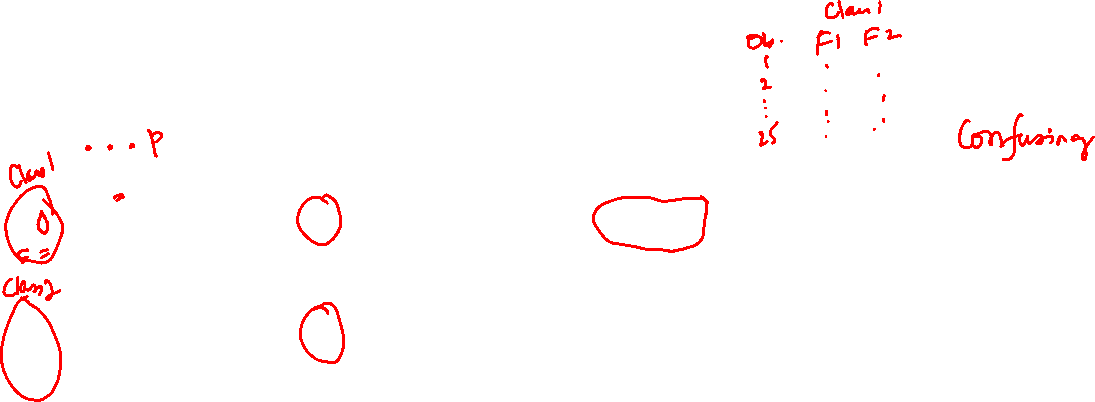 Class 1
Ob. F1 F2
1
2
25
Confusing
... P
Class 1
Class 2